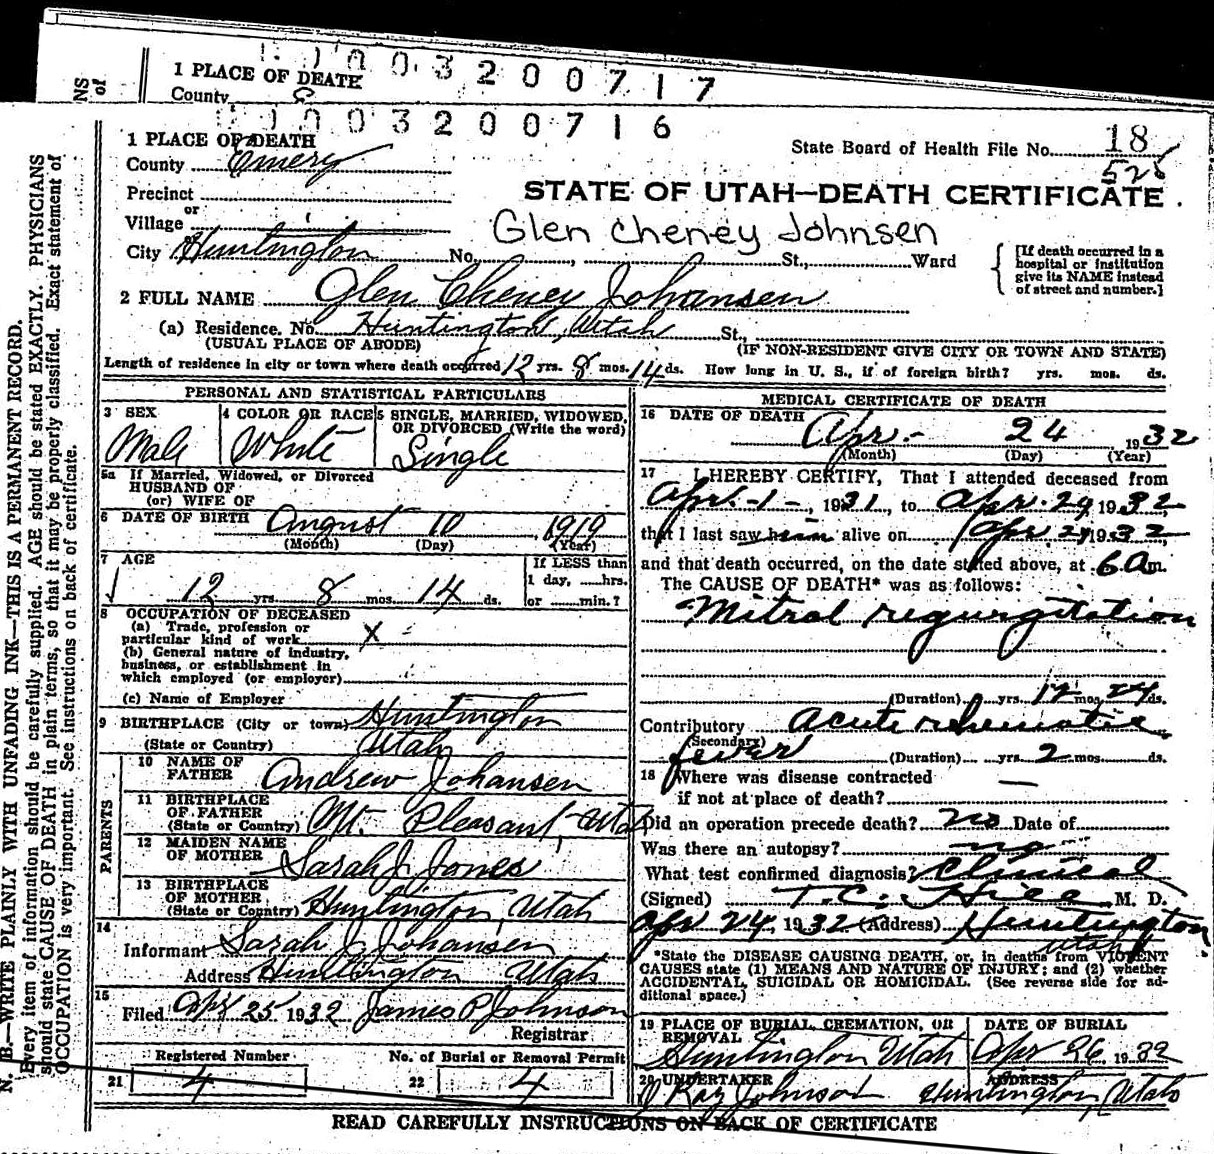 1 PLACE OF DEATH
County
0 0 3 2 0 0 7 1 7
0 0 3 2 0 0 7 1 6
NS of
N. B.—WRITE PLAINLY WITH UNFADING INK—THIS IS A PERMANENT RECORD.
Every item of information should be carefully supplied. AGE should be stated EXACTLY. PHYSICIANS
should state CAUSE OF DEATH in plain terms, so that it may be properly classified. Exact statement of
OCCUPATION is very important. See instructions on back of certificate.
1 PLACE OF DEATH
County Emery
State Board of Health File No. 18
525
Precinct
or
Village
STATE OF UTAH—DEATH CERTIFICATE.
Glen Cheney Johnsen
City Huntington No. , St., Ward
[If death occurred in a
hospital or institution
give its NAME instead
of street and number.]
2 FULL NAME Glen Cheney Johansen
(a) Residence. No. Huntington, Utah St.,
(USUAL PLACE OF ABODE) (IF NON-RESIDENT GIVE CITY OR TOWN AND STATE)
Length of residence in city or town where death occurred 12 yrs. 8 mos. 14 ds. How long in U. S., if of foreign birth? yrs. mos. ds.
PERSONAL AND STATISTICAL PARTICULARS
3 SEX
Male
4 COLOR OR RACE
White
5 SINGLE, MARRIED, WIDOWED,
OR DIVORCED (Write the word)
Single
5a If Married, Widowed, or Divorced
HUSBAND OF
(or) WIFE OF
6 DATE OF BIRTH August 10, 1919
(Month) (Day) (Year)
7 AGE
12 yrs. 8 mos. 14 ds.
If LESS than
1 day, hrs.
or min.?
8 OCCUPATION OF DECEASED
(a) Trade, profession or
particular kind of work X
(b) General nature of industry,
business, or establishment in
which employed (or employer)
(c) Name of Employer
9 BIRTHPLACE (City or town) Huntington
(State or Country) Utah
PARENTS
10 NAME OF
FATHER Andrew Johansen
11 BIRTHPLACE
OF FATHER
(State or Country) Mt. Pleasant, Utah
12 MAIDEN NAME
OF MOTHER Sarah J. Jones
13 BIRTHPLACE
OF MOTHER
(State or Country) Huntington, Utah
14
Informant Sarah J. Johansen
Address Huntington Utah
15
Filed Apr 25 1932 James P Johnson
Registrar
Registered Number
21 4
No. of Burial or Removal Permit
22 4
MEDICAL CERTIFICATE OF DEATH
16 DATE OF DEATH
Apr. 24 1932
(Month) (Day) (Year)
17 I HEREBY CERTIFY, That I attended deceased from
Apr. -1-, 1931, to Apr. 24 1932
that I last saw him alive on Apr 24, 1932,
and that death occurred, on the date stated above, at 6 a m.
The CAUSE OF DEATH* was as follows:
Mitral regurgitation
(Duration) yrs. 12 mos. 24 ds.
Contributory Acute rehumatic
(Secondary)
fever (Duration) yrs. 2 mos. ds.
18 Where was disease contracted
if not at place of death?
Did an operation precede death? no Date of
Was there an autopsy? no
What test confirmed diagnosis? Clinical
(Signed) T.C. Hill, M. D.
Apr 24, 1932 (Address) Huntington
Utah
*State the DISEASE CAUSING DEATH, or, in deaths from VIOLENT
CAUSES state (1) MEANS AND NATURE OF INJURY; and (2) whether
ACCIDENTAL, SUICIDAL OR HOMICIDAL. (See reverse side for ad-
ditional space.)
19 PLACE OF BURIAL, CREMATION, OR
REMOVAL
Huntington Utah
DATE OF BURIAL
Apr 26 1932
20 UNDERTAKER
J Ray Johnson
ADDRESS
Huntington, Utah
READ CAREFULLY INSTRUCTIONS ON BACK OF CERTIFICATE